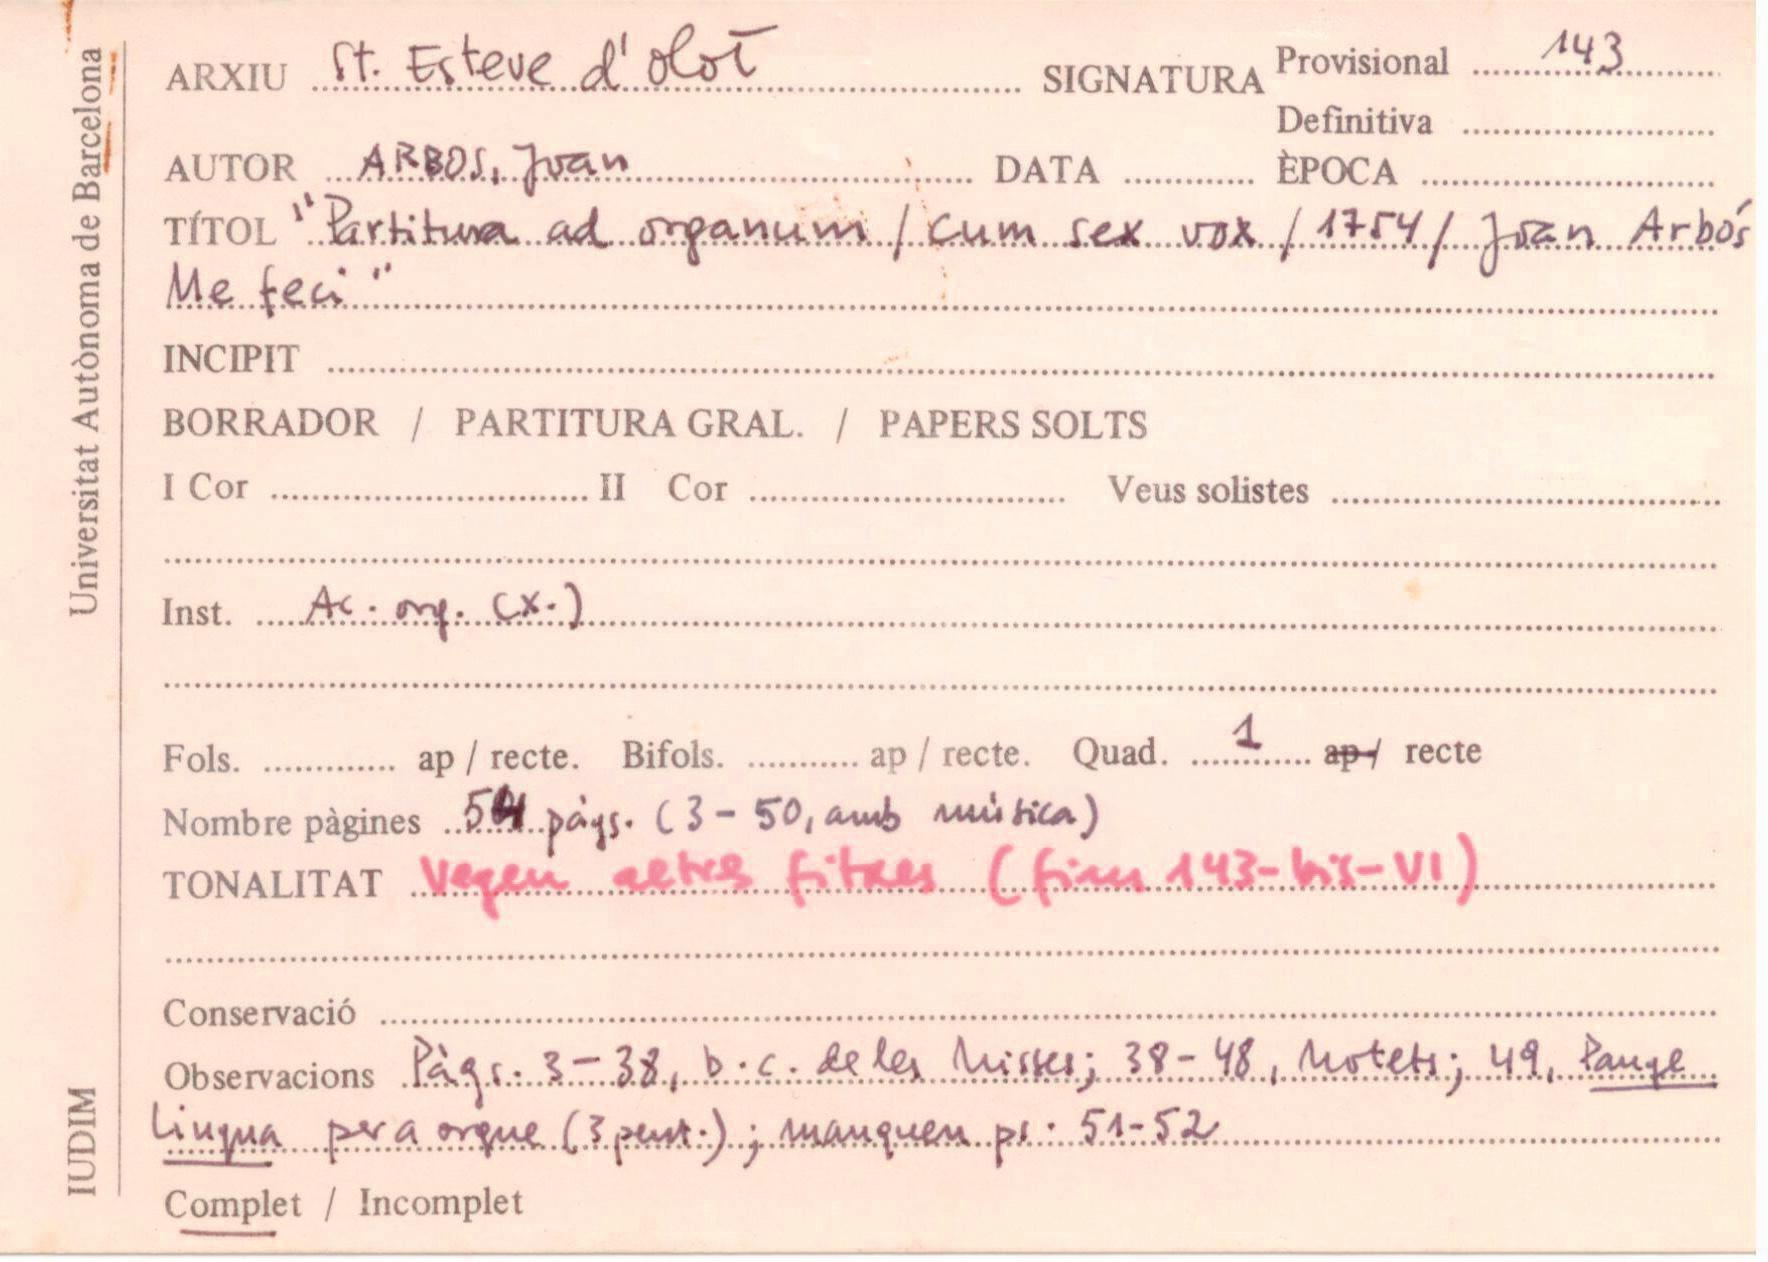 Universitat Autònoma de Barcelona
IUDIM
ARXIU St. Esteve d'Olot SIGNATURA Provisional 143
Definitiva
AUTOR ARBOS, Joan DATA ÈPOCA
TÍTOL "Partitura ad organum / cum sex vox / 1754 / Joan Arbós
Me feci"
INCIPIT
BORRADOR / PARTITURA GRAL. / PAPERS SOLTS
I Cor II Cor Veus solistes
Inst. Ac. org. (x.)
Fols. ap / recte. Bifols. ap / recte. Quad. 1 ap / recte
Nombre pàgines pàgs. (3-50, amb música)
TONALITAT Vegeu altres fitxes (fins 143-bis-VI)
Conservació
Observacions Pàgs. 3-38, b.c. de les Misses; 38-48, Motets; 49, Pange
Lingua per a orgue (3 pent.); manquen ps. 51-52
Complet / Incomplet